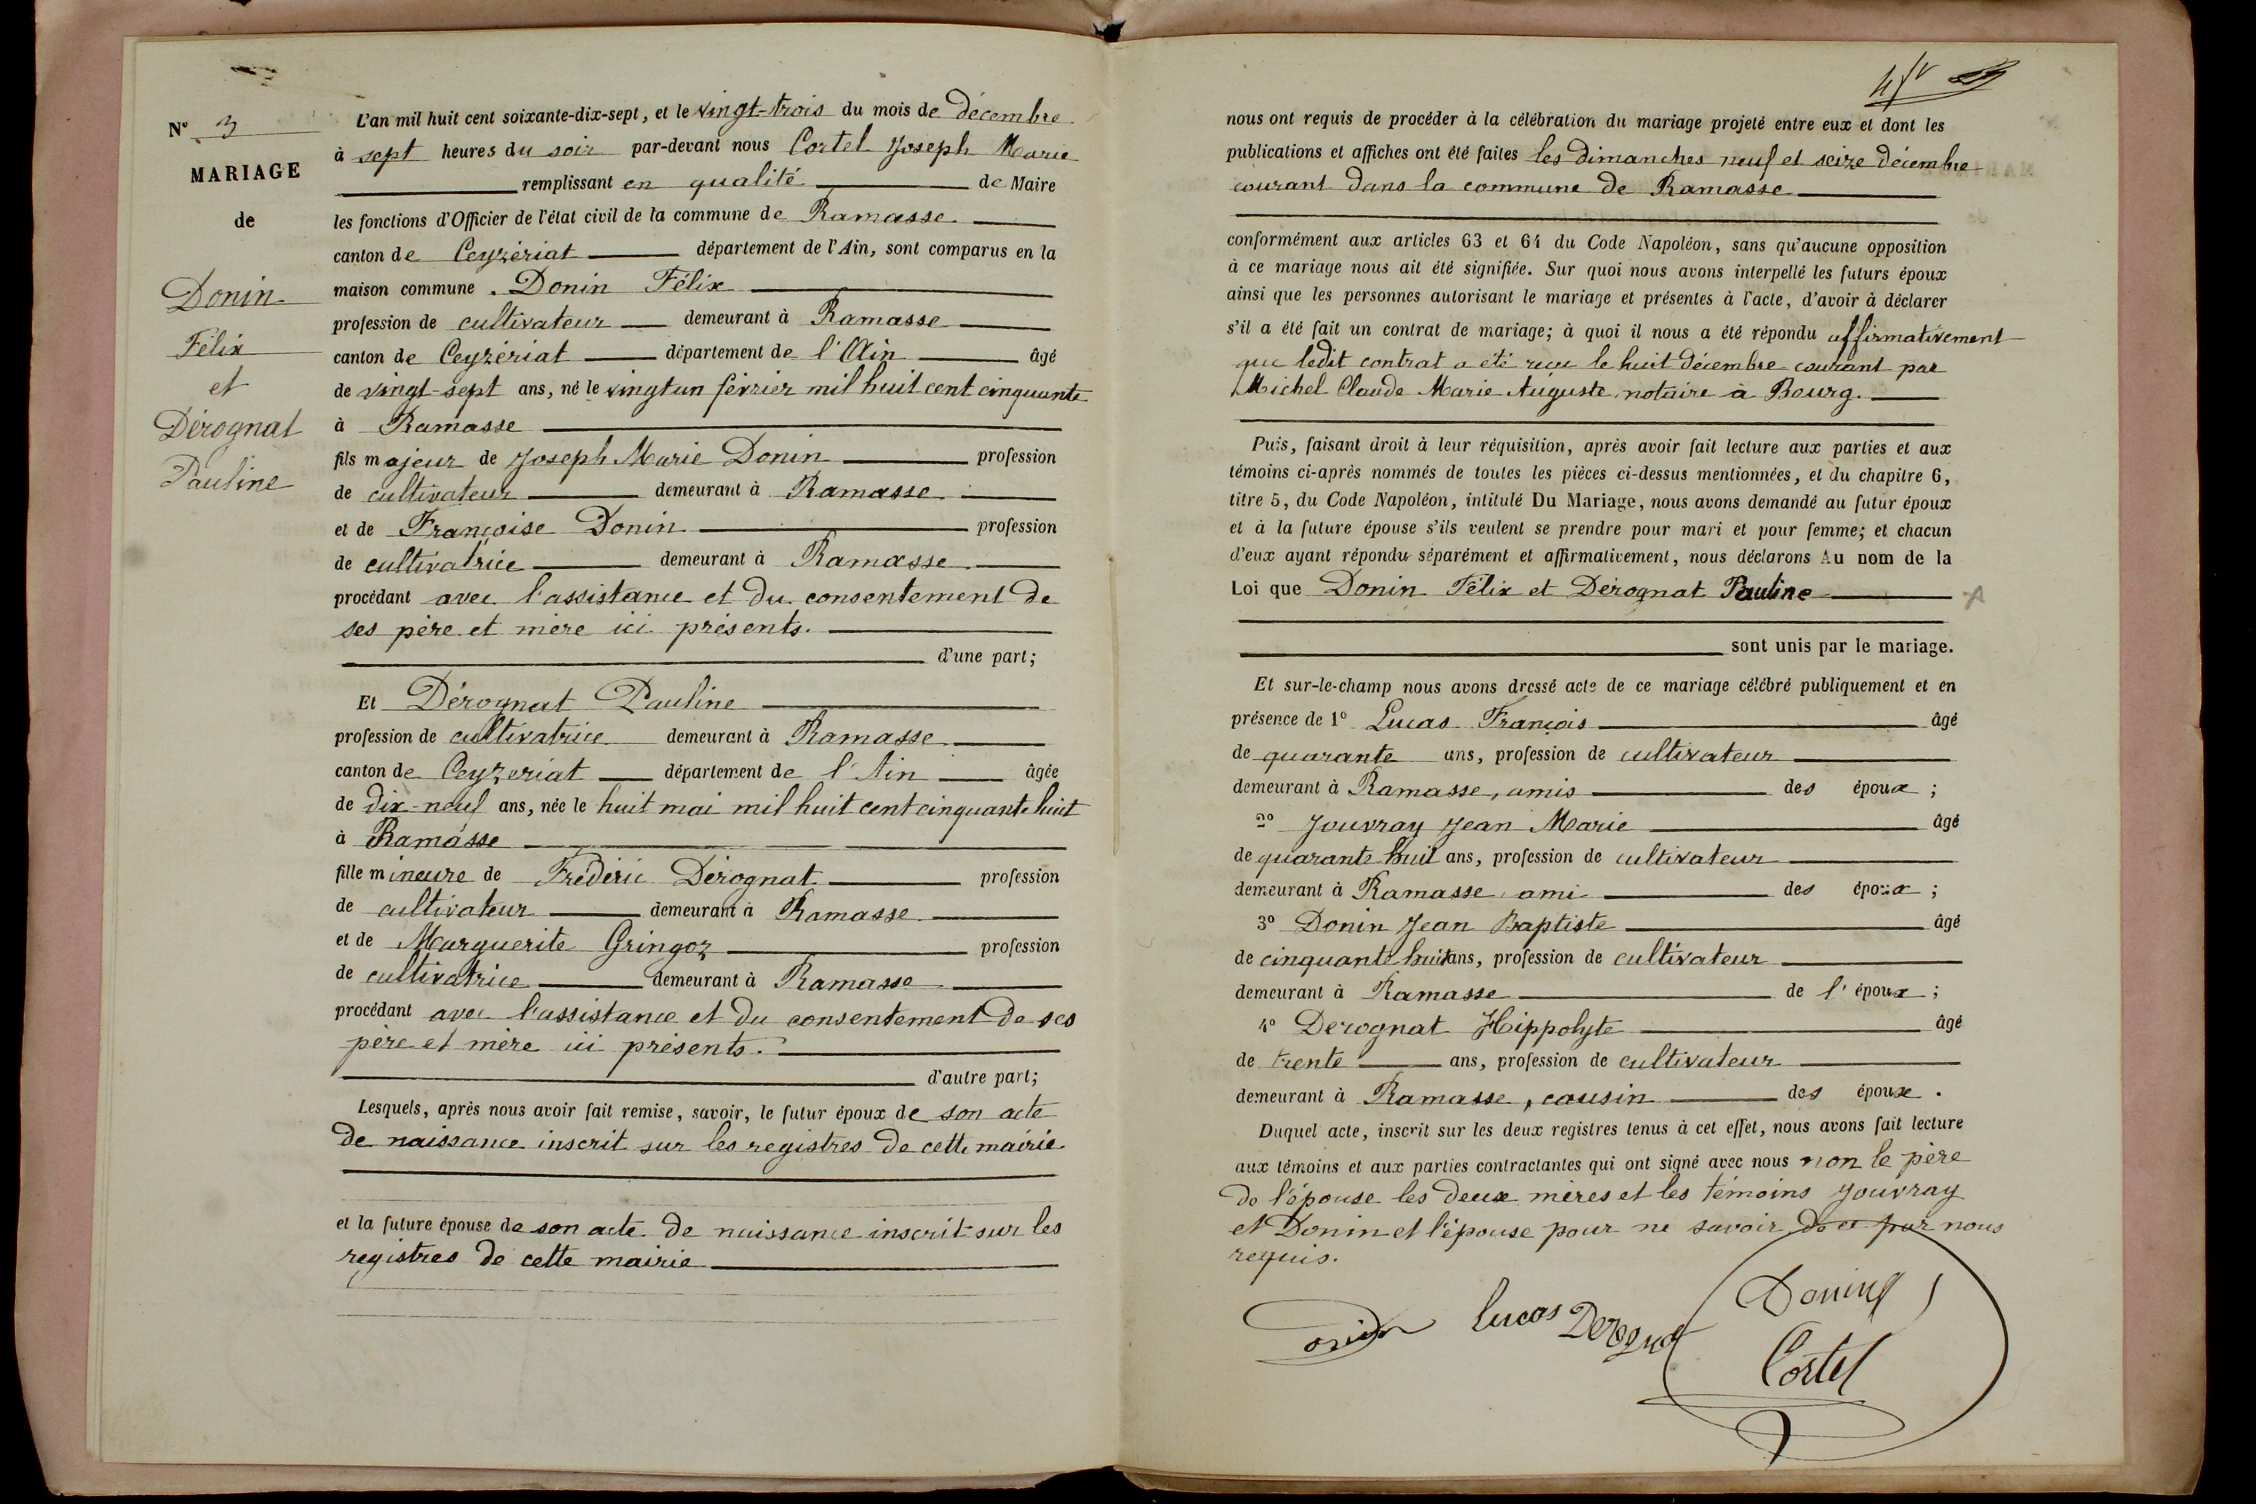 N° 3
MARIAGE
de
Donin
Félix
et
Dérognat
Pauline
L'an mil huit cent soixante-dix-sept, et le vingt-trois du mois de décembre
à sept heures du soir par-devant nous Cortel Joseph Marie
remplissant en qualité de Maire
les fonctions d'Officier de l'état civil de la commune de Ramasse
canton de Ceyzériat département de l'Ain, sont comparus en la
maison commune. Donin Félix
profession de cultivateur demeurant à Ramasse
canton de Ceyzériat département de l'Ain âgé
de vingt-sept ans, né le vingt un février mil huit cent cinquante
à Ramasse
fils majeur de Joseph Marie Donin profession
de cultivateur demeurant à Ramasse
et de Françoise Donin profession
de cultivatrice demeurant à Ramasse
procédant avec l'assistance et du consentement de
ses père et mère ici présents.
d'une part;
Et Dérognat Pauline
profession de cultivatrice demeurant à Ramasse
canton de Ceyzeriat département de l'Ain âgée
de dix-neuf ans, née le huit mai mil huit cent cinquante huit
à Ramasse
fille mineure de Frédéric Dérognat profession
de cultivateur demeurant à Ramasse
et de Marguerite Gringoz profession
de cultivatrice demeurant à Ramasse
procédant avec l'assistance et du consentement de ses
père et mère ici présents.
d'autre part;
Lesquels, après nous avoir fait remise, savoir, le futur époux de son acte
de naissance inscrit sur les registres de cette mairie
et la future épouse de son acte de naissance inscrit sur les
registres de cette mairie
nous ont requis de procéder à la célébration du mariage projeté entre eux et dont les
publications et affiches ont été faites les dimanches neuf et seize décembre
courant dans la commune de Ramasse
conformément aux articles 63 et 64 du Code Napoléon, sans qu'aucune opposition
à ce mariage nous ait été signifiée. Sur quoi nous avons interpellé les futurs époux
ainsi que les personnes autorisant le mariage et présentes à l'acte, d'avoir à déclarer
s'il a été fait un contrat de mariage; à quoi il nous a été répondu affirmativement
que ledit contrat a été reçu le huit décembre courant par
Michel Claude Marie Auguste, notaire à Bourg.
Puis, faisant droit à leur réquisition, après avoir fait lecture aux parties et aux
témoins ci-après nommés de toutes les pièces ci-dessus mentionnées, et du chapitre 6,
titre 5, du Code Napoléon, intitulé Du Mariage, nous avons demandé au futur époux
et à la future épouse s'ils veulent se prendre pour mari et pour femme; et chacun
d'eux ayant répondu séparément et affirmativement, nous déclarons Au nom de la
Loi que Donin Félix et Dérognat Pauline
sont unis par le mariage.
Et sur-le-champ nous avons dressé acte de ce mariage célébré publiquement et en
présence de 1° Lucas François âgé
de quarante ans, profession de cultivateur
demeurant à Ramasse, amis des époux ;
2° Jouvray Jean Marie âgé
de quarante huit ans, profession de cultivateur
demeurant à Ramasse ami des époux ;
3° Donin Jean Baptiste âgé
de cinquante huit ans, profession de cultivateur
demeurant à Ramasse de l'époux ;
4° Derognat Hippolyte âgé
de trente ans, profession de cultivateur
demeurant à Ramasse, cousin des époux .
Duquel acte, inscrit sur les deux registres tenus à cet effet, nous avons fait lecture
aux témoins et aux parties contractantes qui ont signé avec nous non le père
de l'épouse les deux mères et les témoins Jouvray
et Donin et l'épouse pour ne savoir de ce par nous
requis.
Donin Lucas Derognat
Cortel